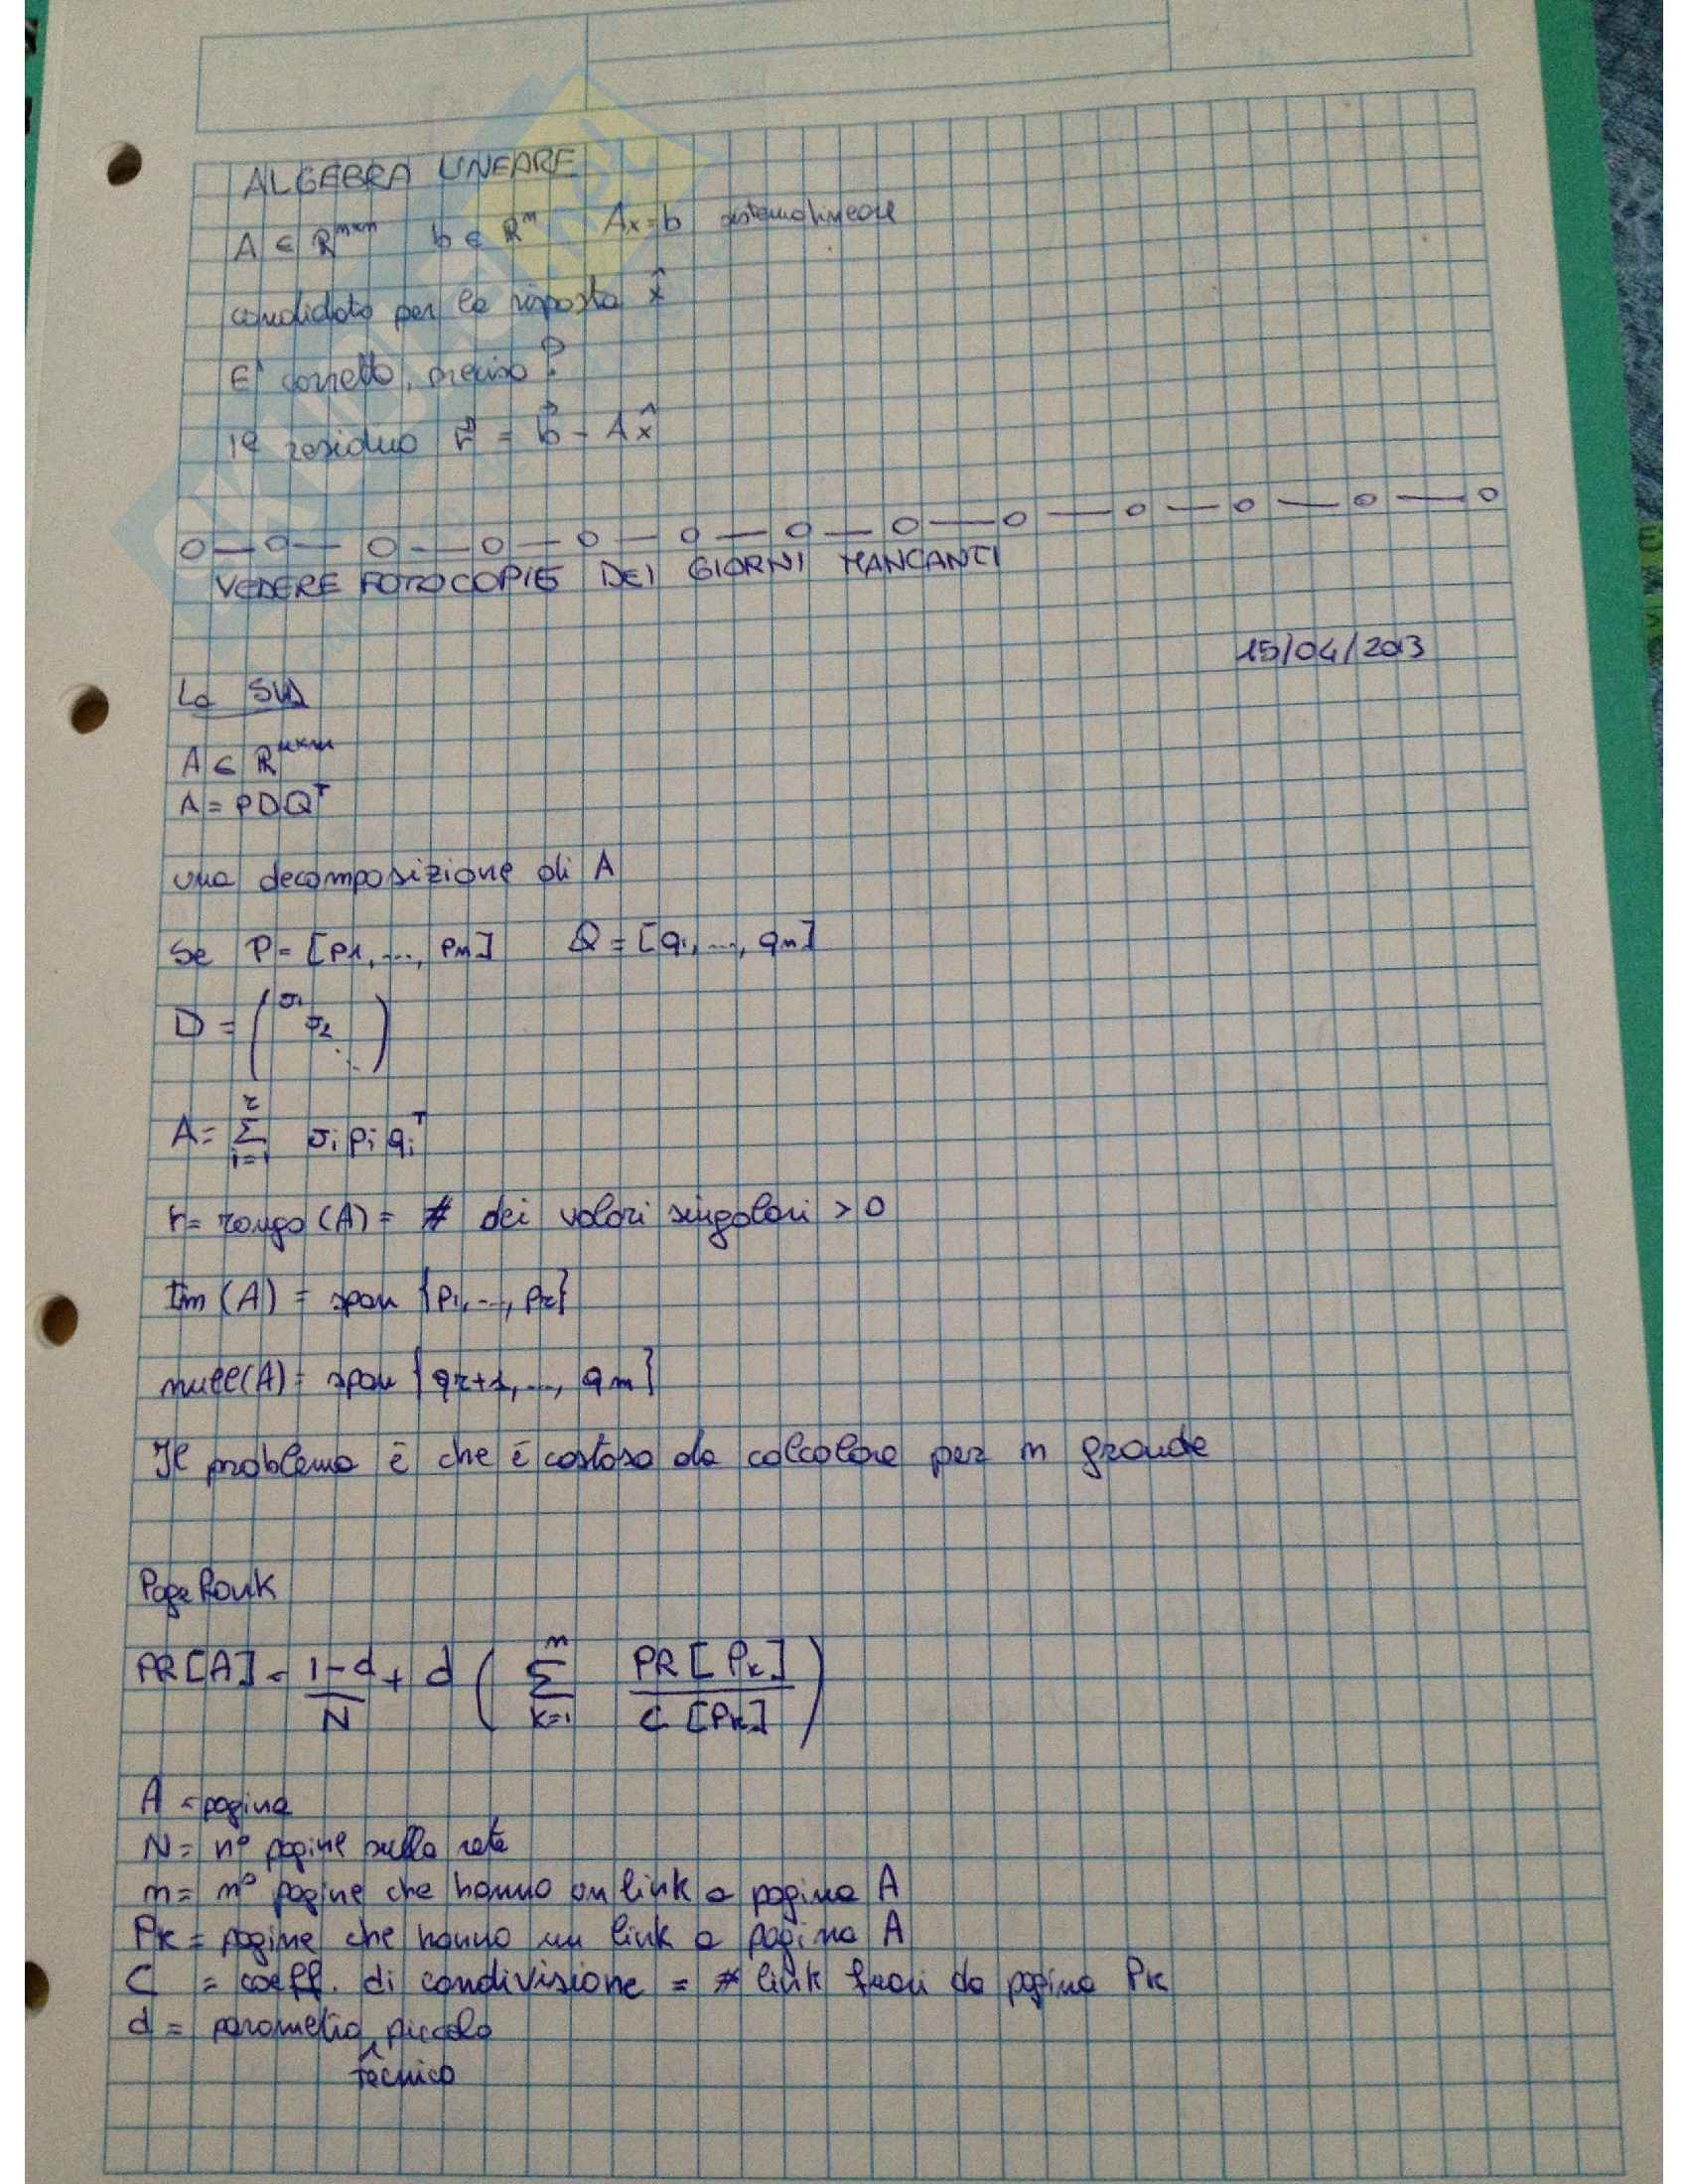 ALGEBRA LINEARE
A ∈ R^mxn b ∈ R^m Ax=b sistema lineare
candidato per la risposta x̂
E' corretto, preciso?
1° residuo r⃗ = b⃗ - Ax̂
o — o — o — o — o — o — o — o — o — o — o — o — o
VEDERE FOTOCOPIE DEI GIORNI MANCANTI
15/04/2013
La SVD
A ∈ R^mxn
A = PDQ^T
una decomposizione di A
Se P = [p1, ..., pm] Q = [q1, ..., qn]
D = ( σ1 σ2 ⋱ )
A = Σ_{i=1}^{r} σi pi qi^T
r = rango(A) = # dei valori singolari > 0
Im (A) = span {p1, ..., pr}
null(A) = span {qr+1, ..., qn}
Il problema è che è costoso da calcolare per n grande
PageRank
PR[A] = (1-d)/N + d ( Σ_{k=1}^{n} PR[Pk] / C[Pk] )
A = pagina
N = n° pagine sulla rete
n = n° pagine che hanno un link a pagina A
Pk = pagine che hanno un link a pagina A
C = coeff. di condivisione = # link fuori da pagina Pk
d = parametro piccolo
tecnico